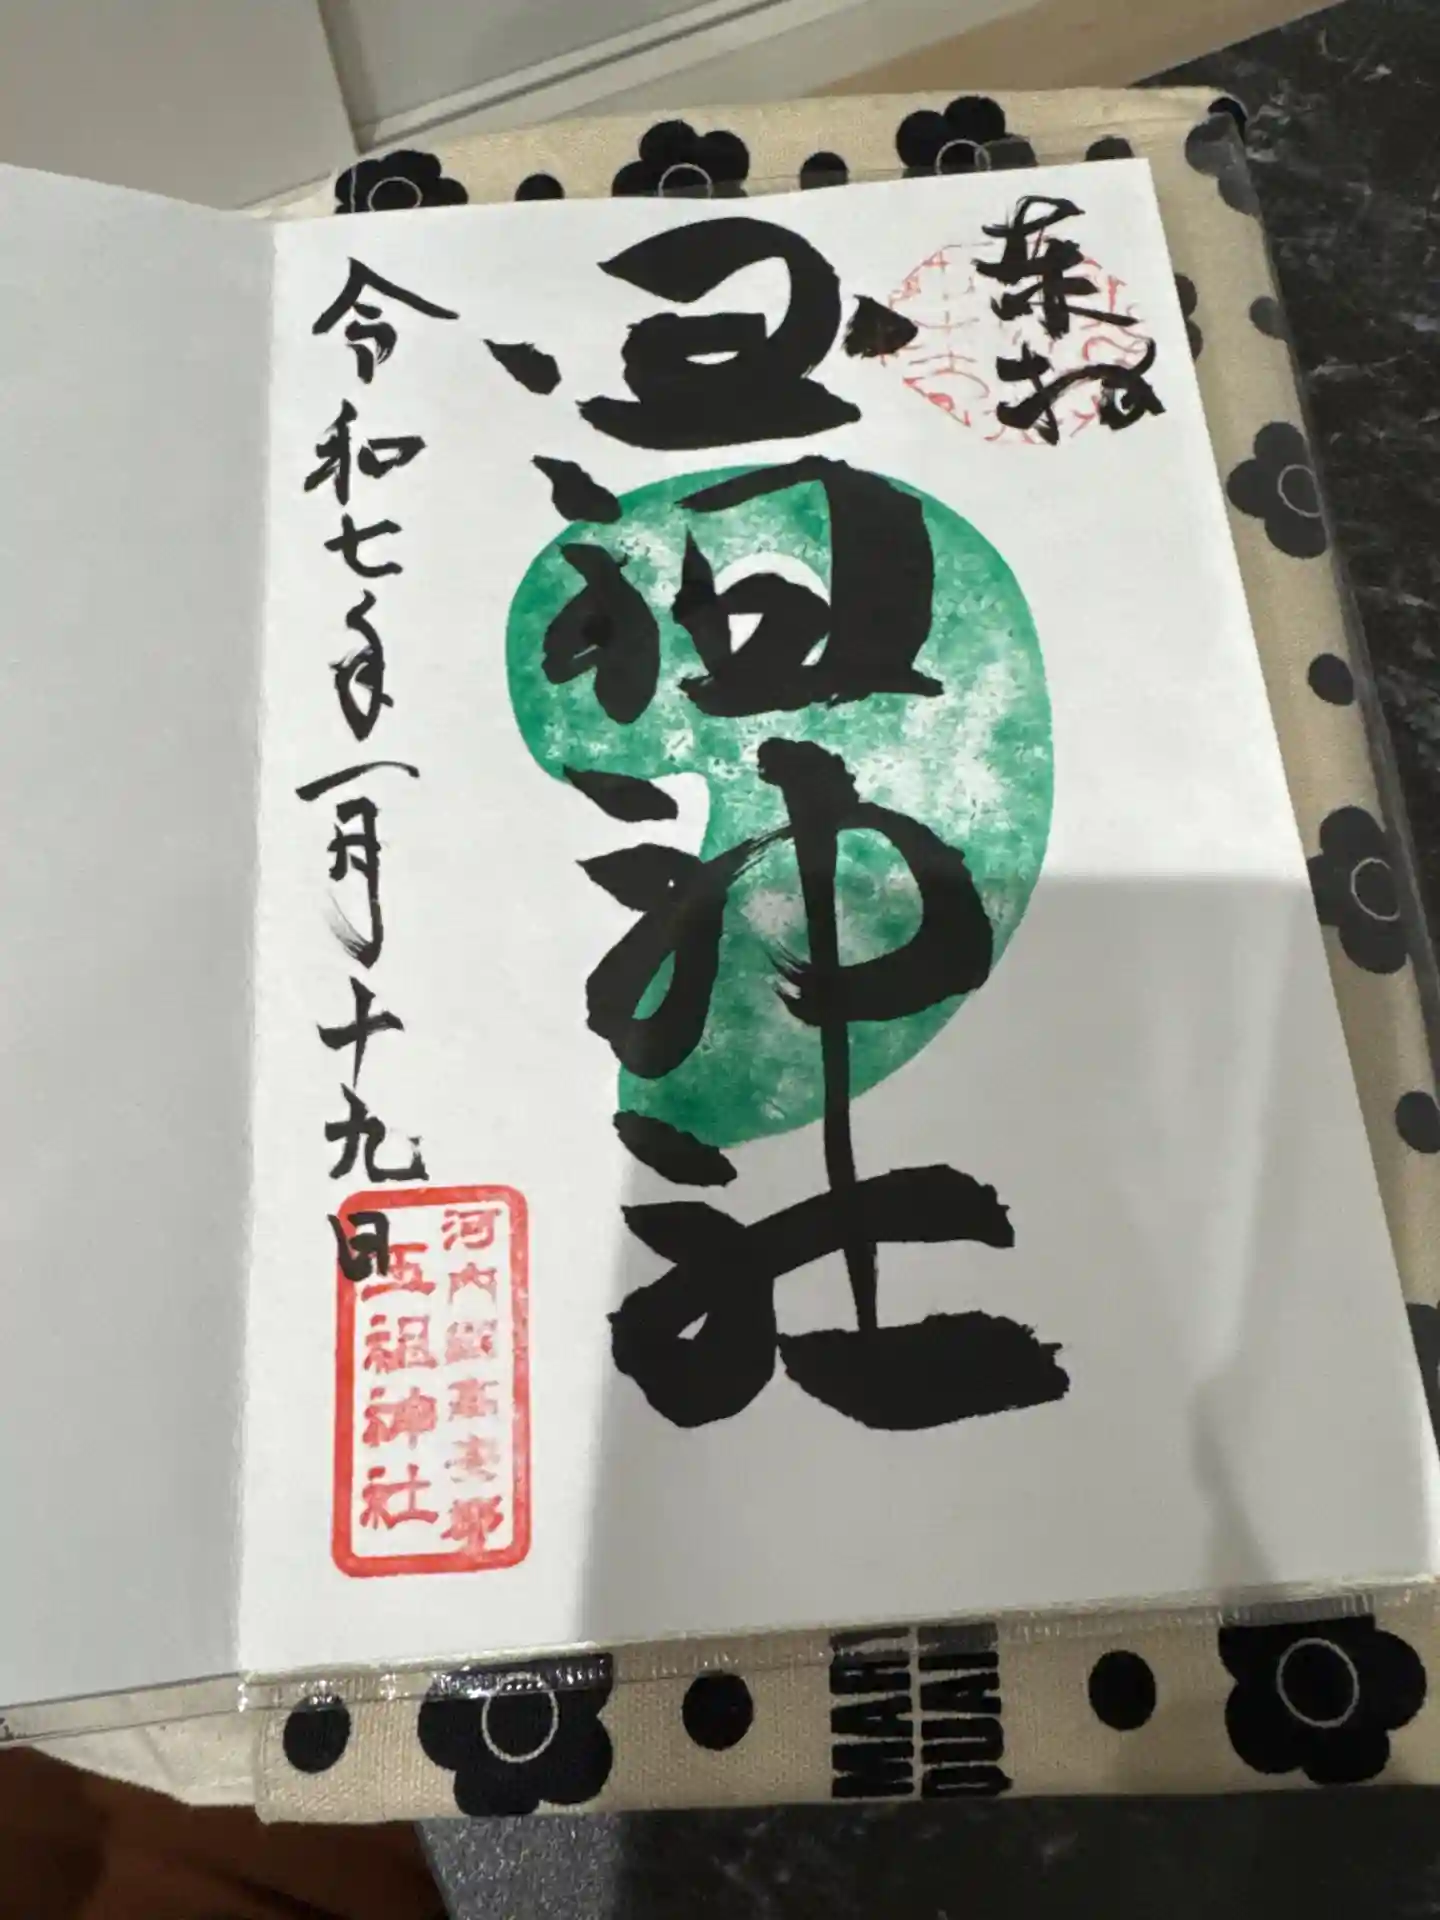 奉拝
玉祖神社
令和七年一月十九日
河内國高安郡
玉祖神社
MARI
QUAN